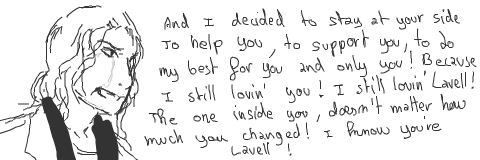 And I decided to stay at your side
To help you, to support you, to do
my best for you and only you! Because
I still lovin' you! I still lovin' Lavell!
The one inside you, doesn't matter how
much you changed! I know you're
Lavell!